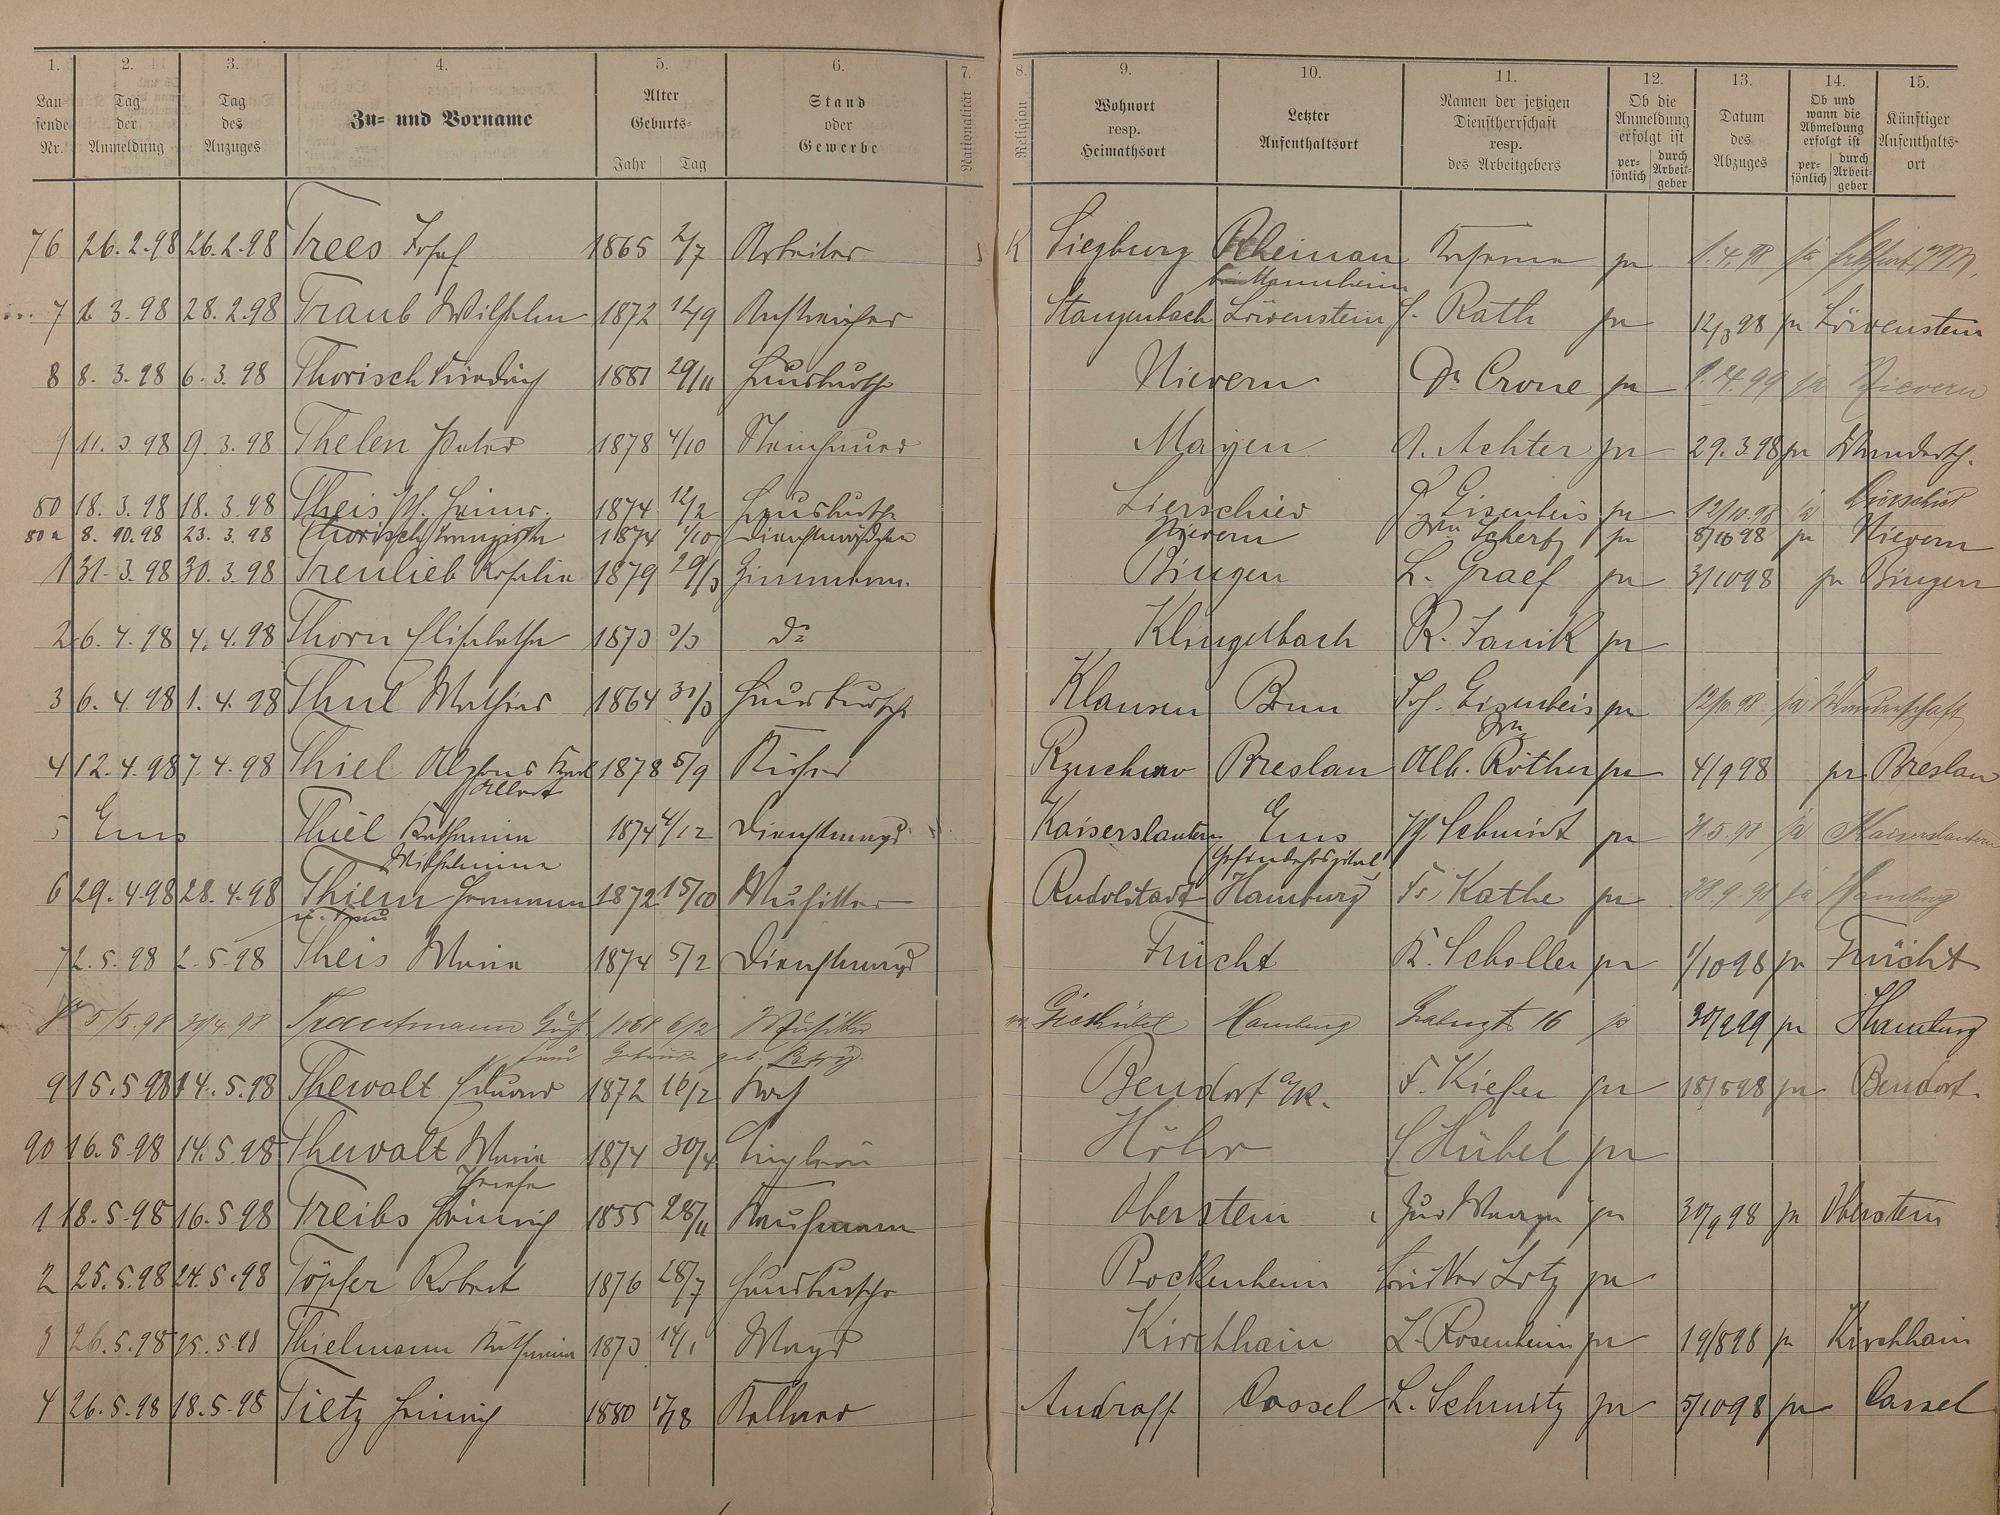 1. 2. 3. 4. 5. 6. 7. 8. 9. 10. 11. 12. 13. 14. 15.
Laufende Nr. Tag der Anmeldung Tag des Anzuges Zu- und Vorname Alter Geburts- Jahr Tag Stand oder Gewerbe Nationalität Religion Wohnort resp. Heimathsort Letzter Aufenthaltsort Namen der jetzigen Dienstherrschaft resp. des Arbeitgebers Ob die Anmeldung erfolgt ist persönlich durch Arbeitgeber Datum des Abzuges Ob und wann die Abmeldung erfolgt ist persönlich durch Arbeitgeber Künftiger Aufenthaltsort
76 26.2.98 26.2.98 Trees Josef 1865 2/7 Arbeiter K Siegburg Rheinau ja 1.4.98 ja
bei Mannheim
7 1.3.98 28.2.98 Traub Wilhelm 1872 12/9 Anstreicher Stangenbach Löwenstein J. Rath ja 12/3 98 ja Löwenstein
8 8.3.98 6.3.98 Thorisch Friedrich 1881 29/11 Hausbursche Nievern Dr Crone ja ja Nievern
9 11.3.98 9.3.98 Thelen Peter 1878 4/10 Steinhauer Mayen A. Achter ja 29.3.98 ja Wandersch.
80 18.3.98 18.3.98 Theis Ph. Heinr. 1874 12/2 Hausbursche Lierschied J. Eisenbeis ja 12/10.98 ja Lierschied
80a 8.10.98 23.3.98 Thorisch Franziska 1874 1/10 Dienstmädchen Nievern Frau Scherf ja 8/10 98 ja Nievern
1 31.3.98 30.3.98 Treulieb Rosalia 1879 29/3 Zimmerm. Bingen L. Graef ja 3/10 98 ja Bingen
2 6.4.98 4.4.98 Thorn Elisabetha 1873 3/3 do Klingelbach R. Janik ja
3 6.4.98 1.4.98 Thul Mathias 1864 31/3 Hausbursche Klausen Bonn Jos. Eisenbeis ja 12/10.98 ja Wanderschaft
4 12.4.98 7.4.98 Thiel Alfons Karl 1878 5/9 Küfer Rzuchow Breslau Alb. Röther ja 4/9 98 ja Breslau
Albert
5 Ems Thiel Katharina 1874 4/12 Dienstmagd Kaiserslautern Ems Ph. Schmidt ja 31.5.98 ja Kaiserslautern
Wilhelmine
6 29.4.98 28.4.98 Thiem Hermann 1872 15/10 Musiker Rudolstadt Hamburg Fr. Kathe ja 28.9.98 ja Hamburg
u. Frau
7 2.5.98 2.5.98 Theis Maria 1874 5/2 Dienstmagd Frücht K. Scholler ja 1/10 98 ja Frücht
8 5/5.98 30/4.98 Trautmann Gust. 1868 6/12 Musiker Hamburg 16 ja 30/9 99 ja Hamburg
Frau geb.
9 15.5.98 14.5.98 Thewalt Eduard 1872 16/2 Koch Bendorf a/R. F. Kiefer ja 18/5 98 ja Bendorf
90 16.5.98 14.5.98 Thewalt Maria 1874 30/4 Höhr C Hübel ja
Theresa
1 18.5.98 16.5.98 Treibs Heinrich 1855 28/11 Kaufmann Oberstein ja 30/9 98 ja Oberstein
2 25.5.98 24.5.98 Töpfer Robert 1876 28/7 Hausbursche Rockenheim Lotz ja
3 26.5.98 25.5.98 Thielmann Katharina 1873 14/1 Magd Kirchhain L. Rosenheim ja 19/8 98 ja Kirchhain
4 26.5.98 18.5.98 Tietz Heinrich 1880 17/8 Kellner Cassel L. Schmitz ja 5/10 98 ja Cassel